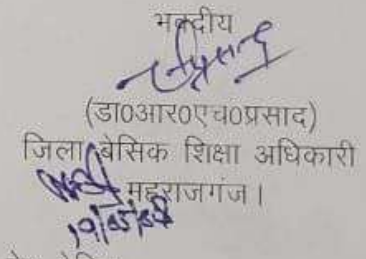 भवदीय
(डा0आर0एच0प्रसाद)
जिला बेसिक शिक्षा अधिकारी
महराजगंज।